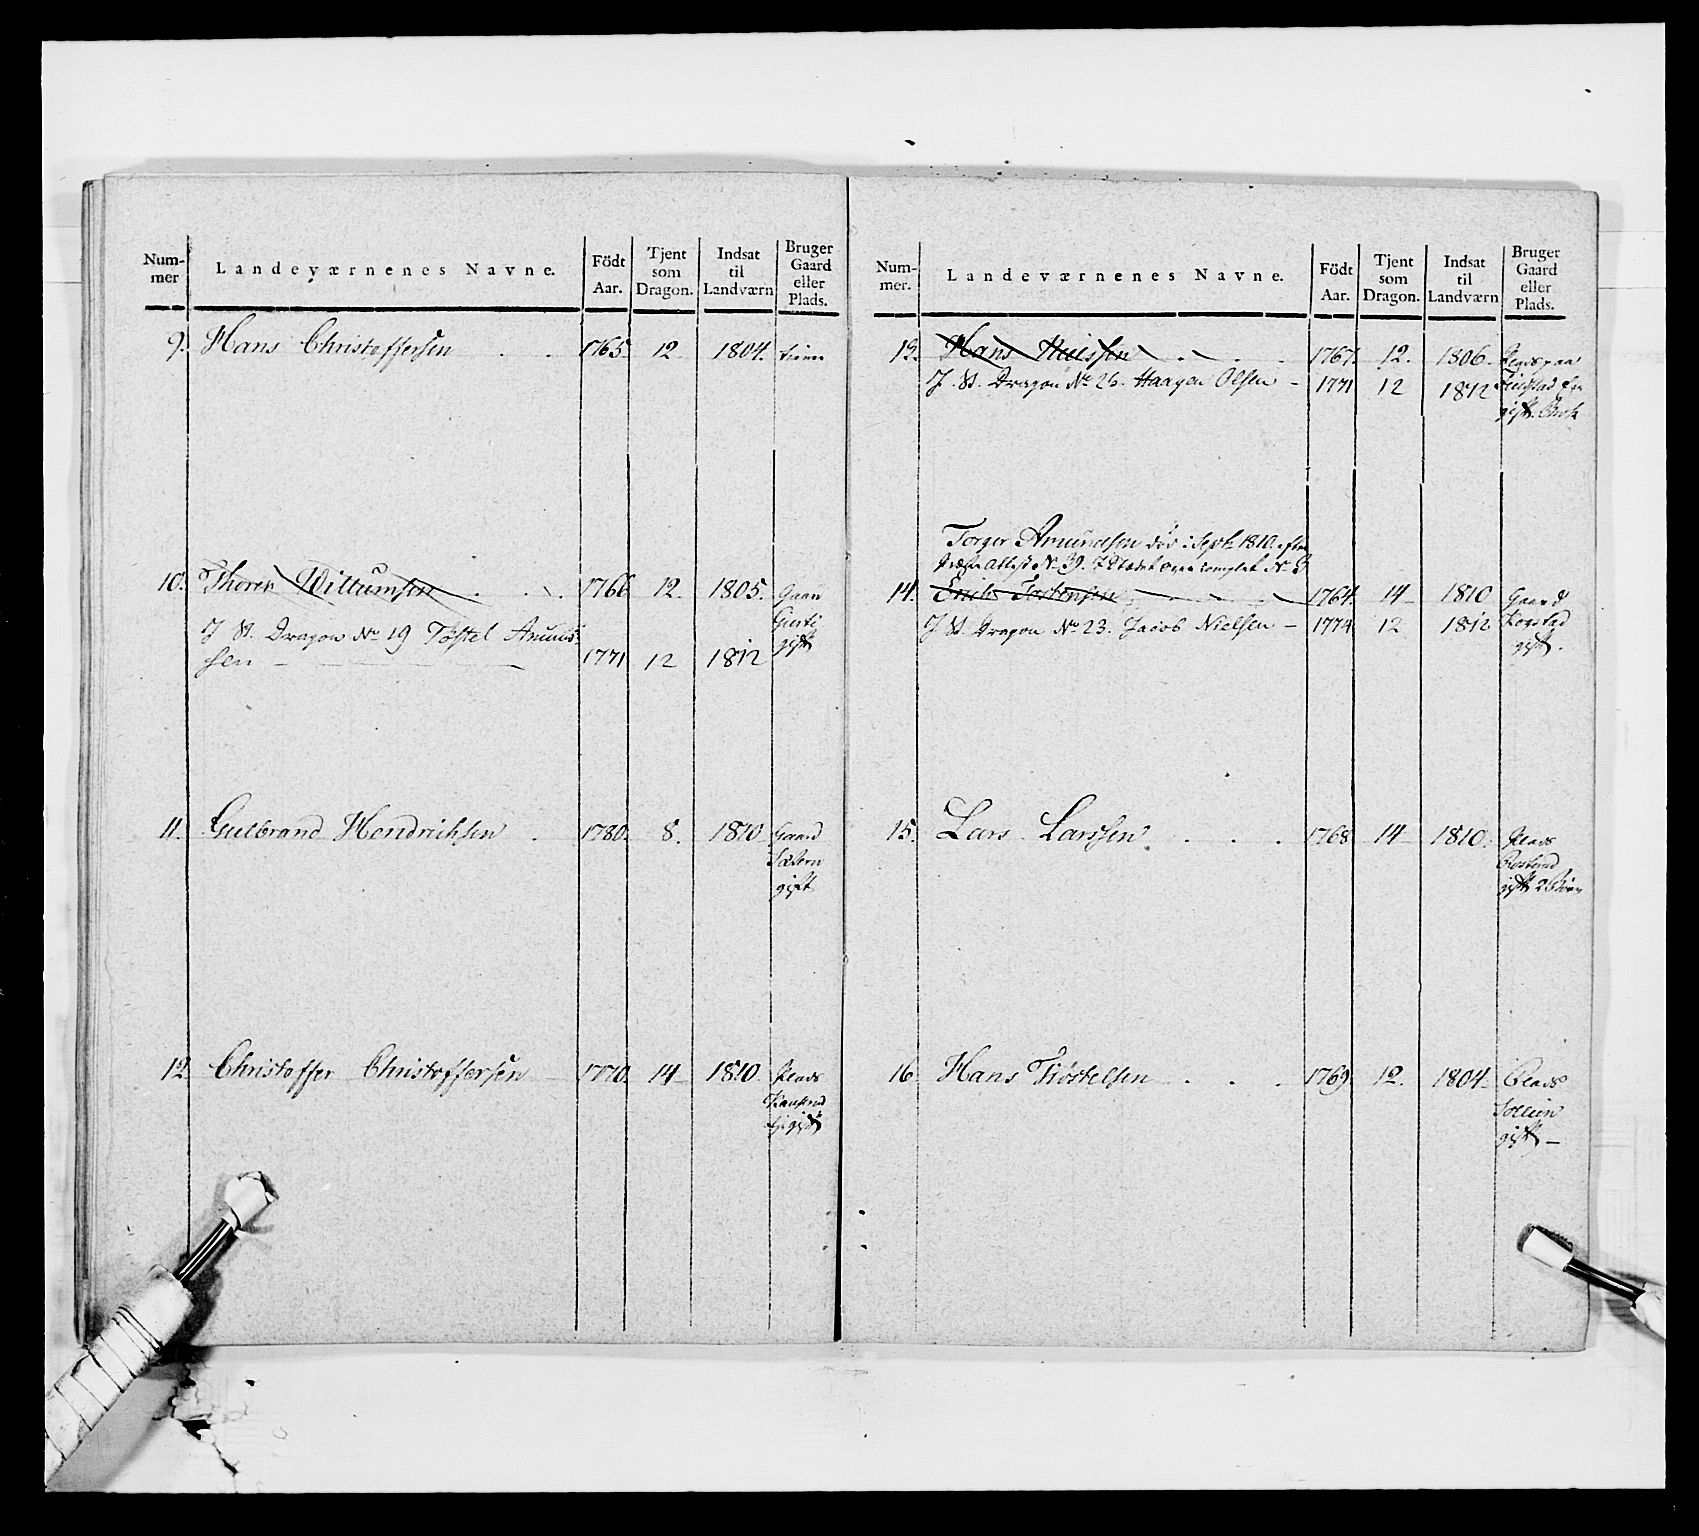 Num-
mer
Landeværnenes Navne.
Födt
Aar.
Tjent
som
Dragon.
Indsat
til
Landværn
Bruger
Gaard
eller
Plads.
9. Hans Christoffersen . . 1765 12 1804.
10. Thorer Willumsen . . . 1766 12. 1805. Gaard
J St. Dragon No 19 Töstel Amund-
sen – 1771 12 1812 gift
11. Gulbrand Hendrichsen . 1780. 8. 1810 Gaard
gift
12. Christoffer Christoffersen 1770. 14 1810. Plads
Num-
mer.
Landeværnenes Navne.
Födt
Aar.
Tjent
som
Dragon.
Indsat
til
Landværn
Bruger
Gaard
eller
Plads.
13. Hans . . . 1767. 12. 1806.
J. St. Dragon No 26. Haagen Olsen – 1771 12 1812
gift
Torger Amundsen död i Septb 1810. efter
Attest No 39. J Stædet over complet No 3
14. 1764. 14 1810 Gaard
J St. Dragon No 23. Jacob Nielsen – 1774 12 1812
gift.
15. Lars Larssen . . . 1768 14 1810. Plads
gift 2 Börn
16 Hans Tiöstelsen . . . 1769. 12. 1804. Plads
gift –